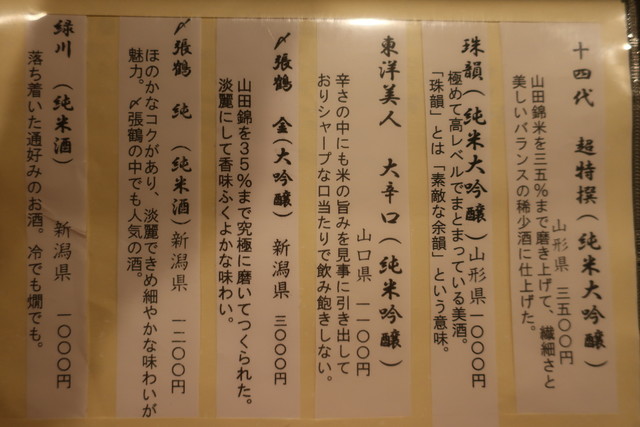 十四代　超特撰（純米大吟醸）
山形県　三五〇〇円
山田錦米を三五％まで磨き上げて、繊細さと
美しいバランスの稀少酒に仕上げた。
珠韻（純米大吟醸）山形県一〇〇〇円
極めて高レベルでまとまっている美酒。
「珠韻」とは「素敵な余韻」という意味。
東洋美人　大辛口（純米吟醸）
山口県　一一〇〇円
辛さの中にも米の旨みを見事に引き出して
おりシャープな口当たりで飲み飽きしない。
〆張鶴　金（大吟醸）　新潟県　三〇〇〇円
山田錦を３５％まで究極に磨いてつくられた。
淡麗にして香味ふくよかな味わい。
〆張鶴　純（純米酒）新潟県　一二〇〇円
ほのかなコクがあり、淡麗できめ細やかな味わいが
魅力。〆張鶴の中でも人気の酒。
緑川（純米酒）　新潟県　一〇〇〇円
落ち着いた通好みのお酒。冷でも燗でも。